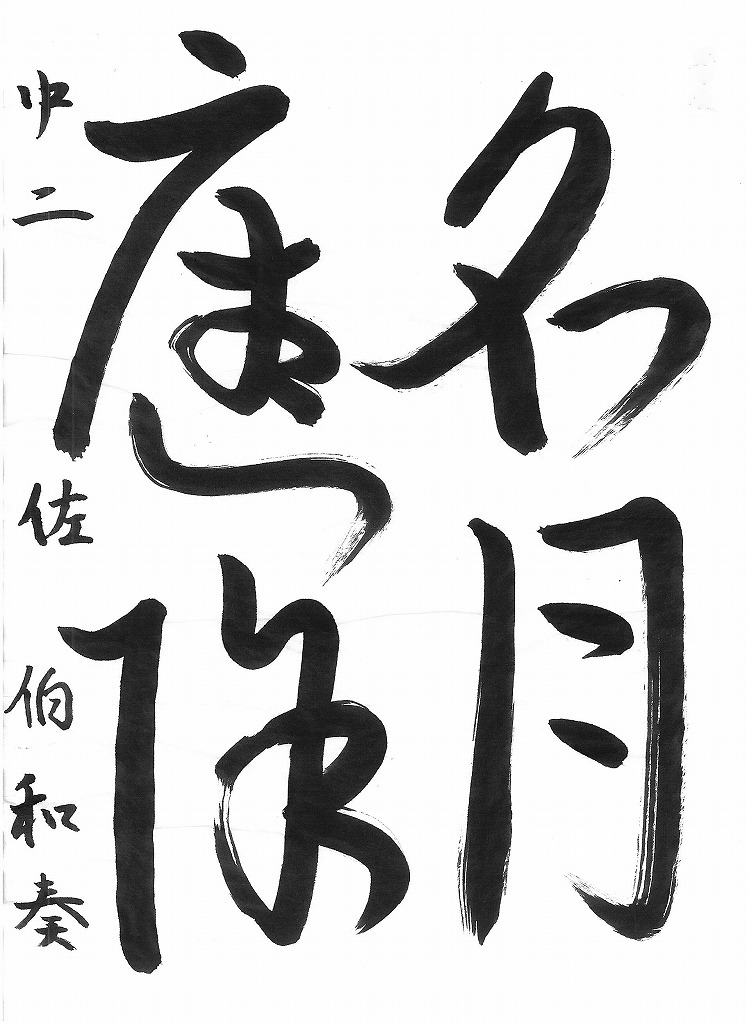 名月
庭除
中二 佐伯和奏